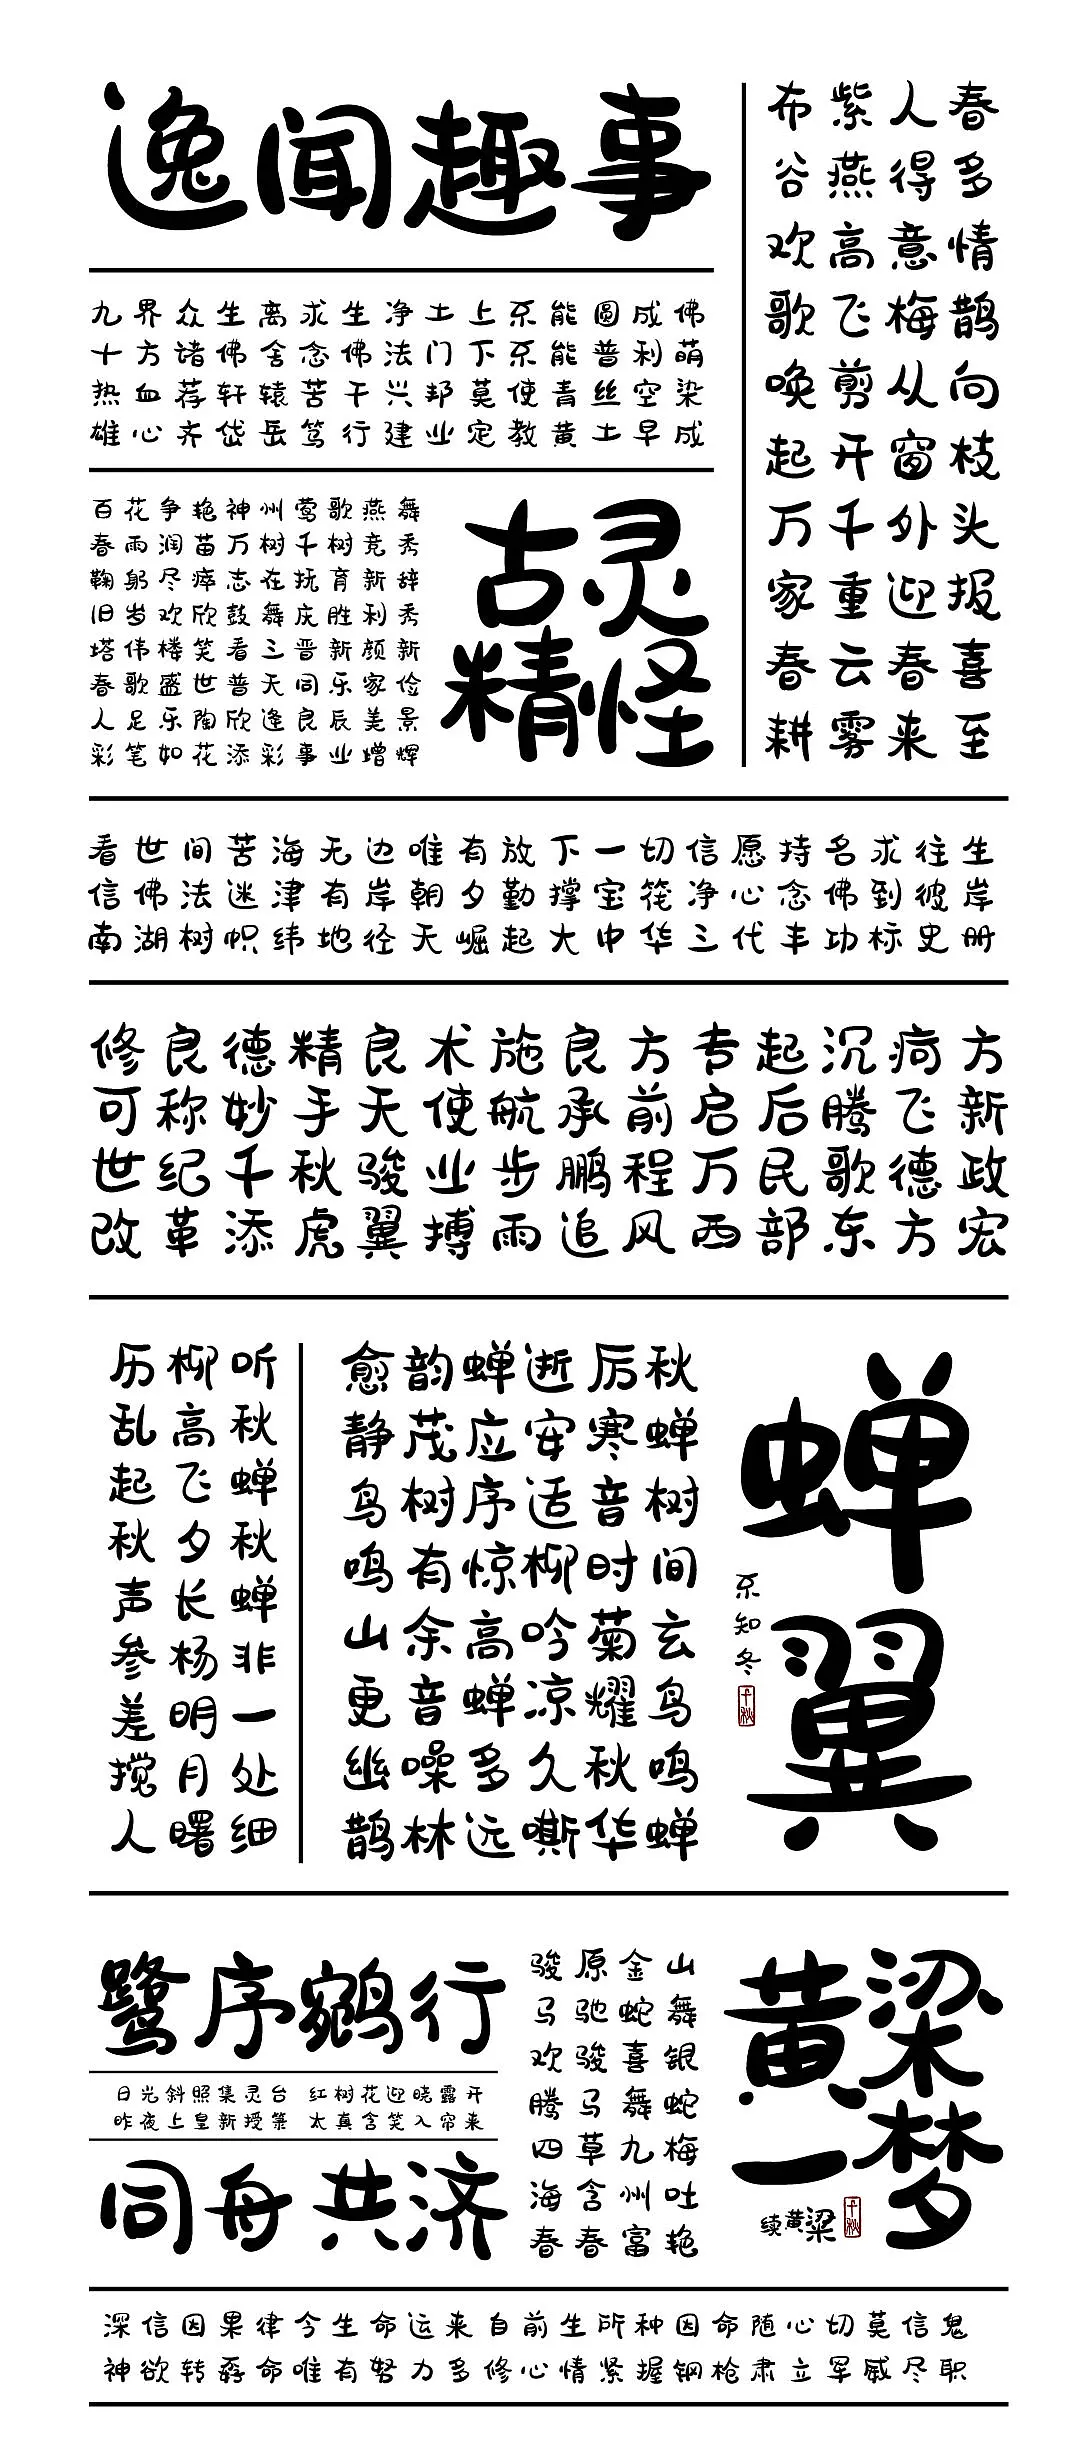 逸闻趣事
春多情鹊向枝头报喜至
人得意梅从窗外迎春来
紫燕高飞剪开千重云雾
布谷欢歌唤起万家春耕
九界众生离求生净土上不能圆成佛
十方诸佛舍念佛法门下不能普利萌
热血荐轩辕苦干兴邦莫使青丝空染
雄心齐岱岳笃行建业定教黄土早成
百花争艳神州莺歌燕舞
春雨润苗万树千树竞秀
鞠躬尽瘁志在抚育新辞
旧岁欢欣鼓舞庆胜利秀
塔伟楼笑看三晋新颜新
春歌盛世普天同乐家俭
人足乐陶欣逢良辰美景
彩笔如花添彩事业增辉
古灵
精怪
看世间苦海无边唯有放下一切信愿持名求往生
信佛法迷津有岸朝夕勤撑宝筏净心念佛到彼岸
南湖树帜纬地径天崛起大中华三代丰功标史册
修良德精良术施良方专起沉疴方
可称妙手天使航承前启后腾飞新
世纪千秋骏业步鹏程万民歌德政
改革添虎翼搏雨追风西部东方宏
蝉翼
不知冬
千秋
秋蝉树间玄鸟鸣蝉
厉寒音时菊耀秋华
逝安适柳吟凉久嘶
蝉应序惊高蝉多远
韵茂树有余音噪林
愈静鸟鸣山更幽鹊
听秋蝉秋蝉非一处细
柳高飞夕长杨明月曙
历乱起秋声参差搅人
鹭序鹓行
日光斜照集灵台 红树花迎晓露开
昨夜上皇新授箓 太真含笑入帘来
同舟共济
山舞银蛇梅吐艳
金蛇喜舞九州富
原驰骏马草含春
骏马欢腾四海春
黄粱
一梦
续黄粱
千秋
深信因果律今生命运来自前生所种因命随心切莫信鬼
神欲转孬命唯有努力多修心情紧握钢枪肃立军威尽职